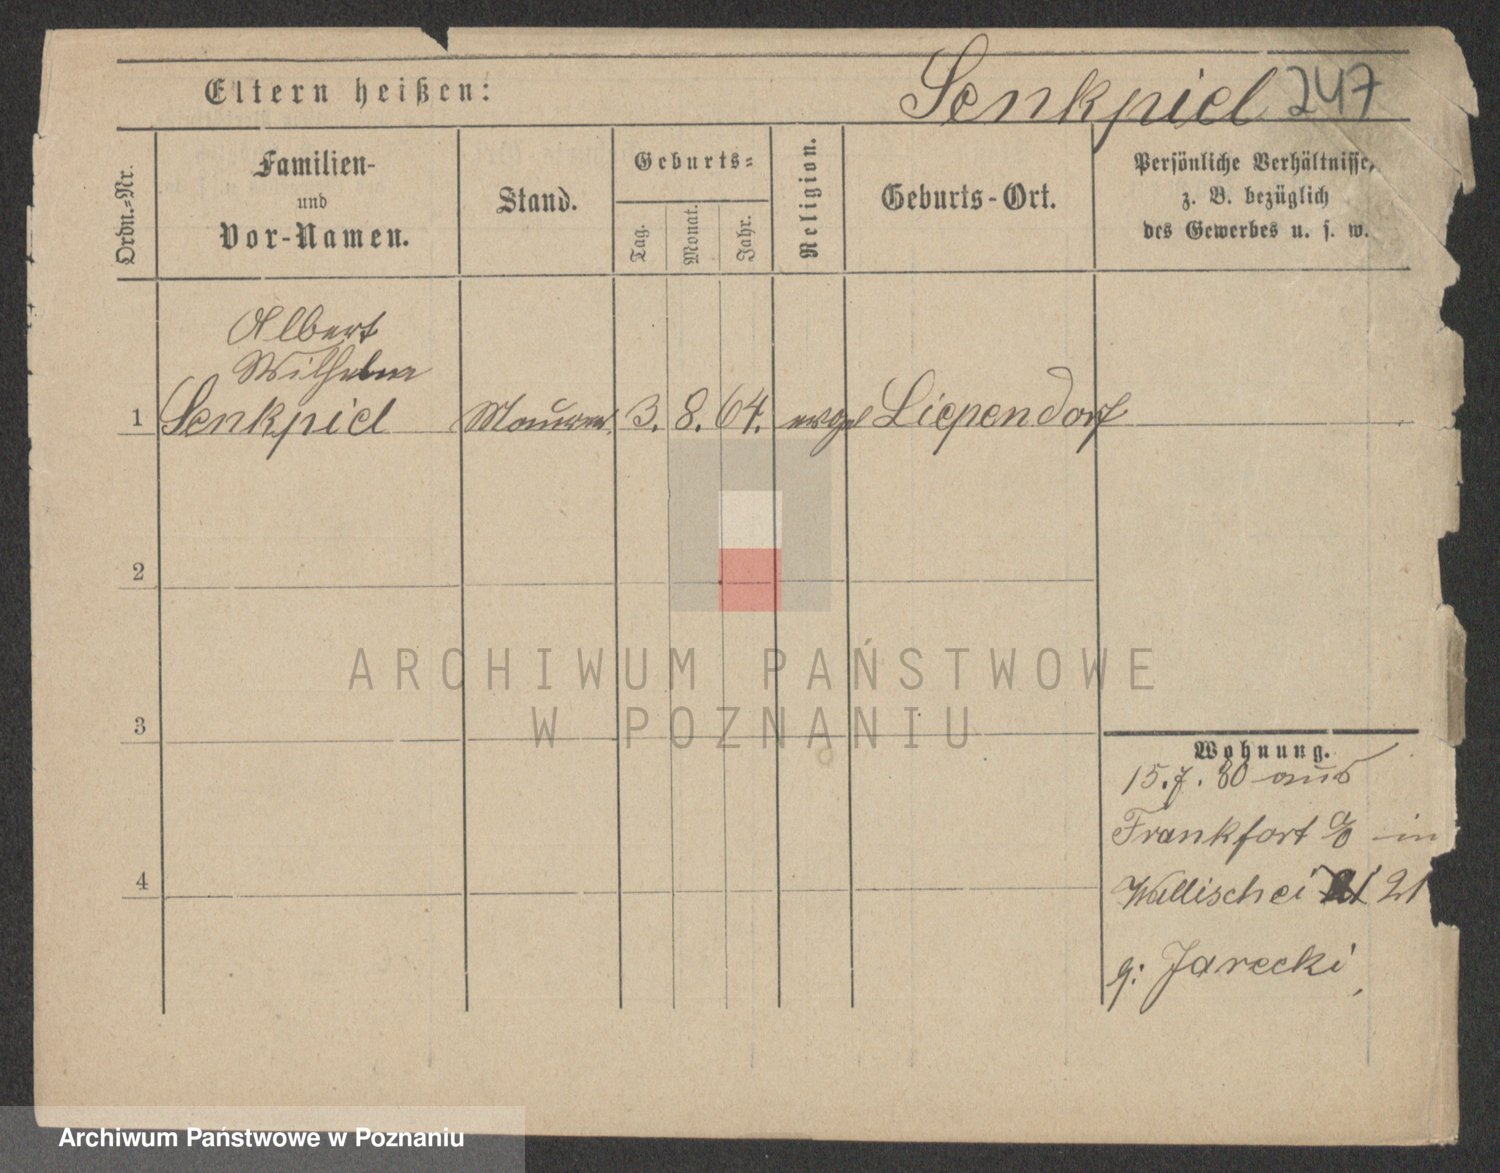 Eltern heißen:
Senkpiel 247
Ordn.-Nr.
Familien-
und
Vor-Namen.
Stand.
Geburts-
Tag.
Monat.
Jahr.
Religion.
Geburts-Ort.
Persönliche Verhältnisse,
z. B. bezüglich
des Gewerbes u. s. w.
Albert
Wilhelm
1 Senkpiel Maurer. 3. 8. 64. evgl Liependorf
2
3
4
Wohnung.
15.7.80 aus
Frankfort a/O in
Wallischei 21
b: Jarecki
ARCHIWUM PAŃSTWOWE
W POZNANIU
Archiwum Państwowe w Poznaniu